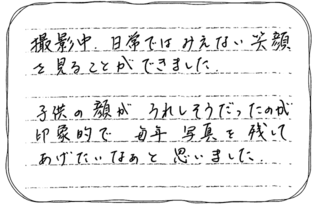 撮影中、日常ではみえない笑顔
を見ることができました。
子供の顔が うれしそうだったのが
印象的で 毎年 写真を残して
あげたいなぁと思いました。